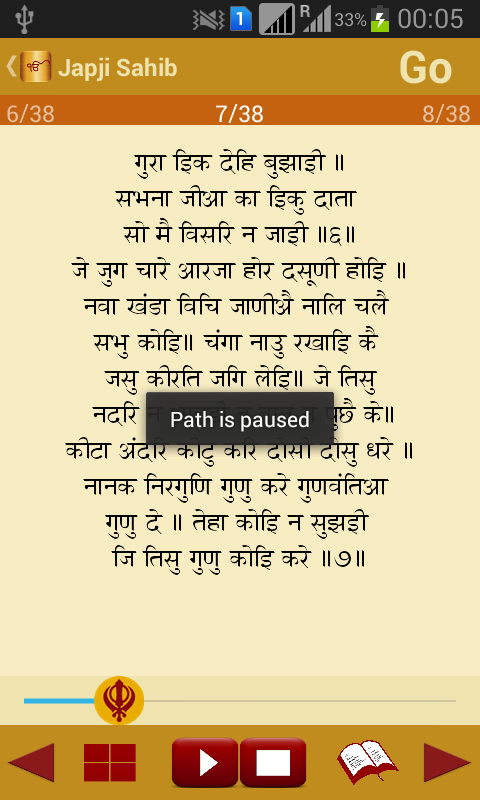 R 33% 00:05
1
Japji Sahib Go
6/38 7/38 8/38
गुरा इिक देहि बुझाइी ॥
सभना जीआ का इिकु दाता
सो मै विसरि न जाइी ॥६॥
जे जुग चारे आरजा होर दसूणी होइि ॥
नवा खंडा विचि जाणीअै नालि चलै
सभु कोइि॥ चंगा नाउ रखाइि कै
जसु कीरति जगि लेइि॥ जे तिसु
नदरि न पुछै के॥
Path is paused
कीटा अंदरि कीटु करि दोसी दोसु धरे ॥
नानक निरगुणि गुणु करे गुणवंतिआ
गुणु दे ॥ तेहा कोइि न सुझइी
जि तिसु गुणु कोइि करे ॥७॥